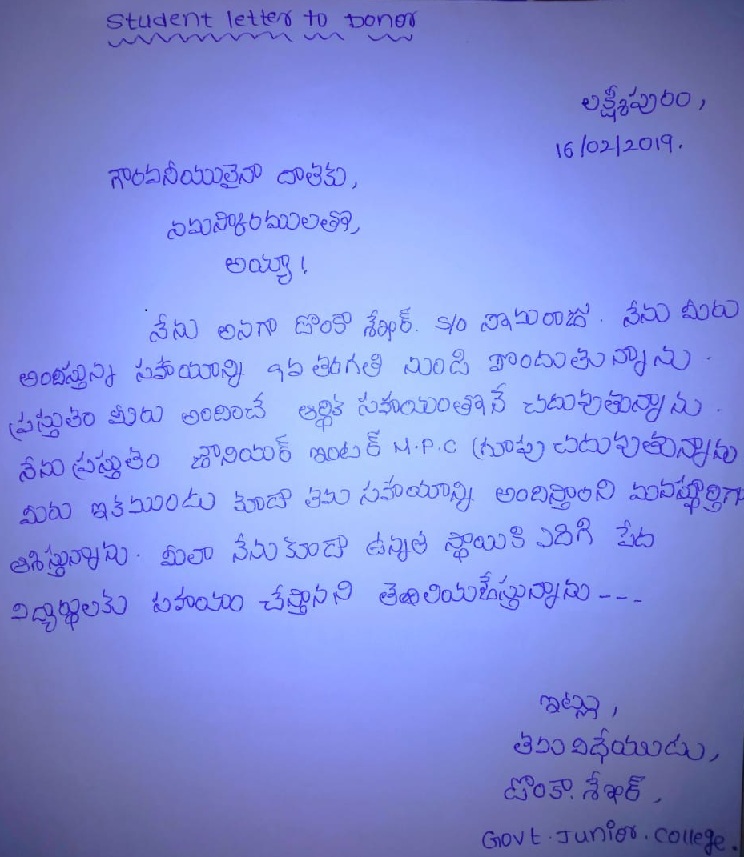 Student letter to Donor
లక్ష్మీపురం,
16/02/2019.
గౌరవనీయులైనా దాతకు,
నమస్కారములతో,
అయ్యా!
నేను అనగా డొంకా శేఖర్. S/o సోమరాజు. నేను మీరు
అందిస్తున్న సహాయాన్ని 7వ తరగతి నుండి పొందుతున్నాను.
ప్రస్తుతం మీరు అందించే ఆర్థిక సహయంతోనే చదువుతున్నాను.
నేను ప్రస్తుతం జూనియర్ ఇంటర్ M.P.C గ్రూపు చదువుతున్నాను
మీరు ఇకముందు కూడా తమ సహయాన్ని అందిస్తారని మనస్ఫూర్తిగా
ఆశిస్తున్నాను. మీలా నేనుకూడా ఉన్నత స్థాయికి ఎదిగి పేద
విద్యార్థులకు సహయం చేస్తానని తెలియజేస్తున్నాను ---
ఇట్లు,
తమ విధేయుడు,
డొంకా. శేఖర్,
Govt. Junior. College.